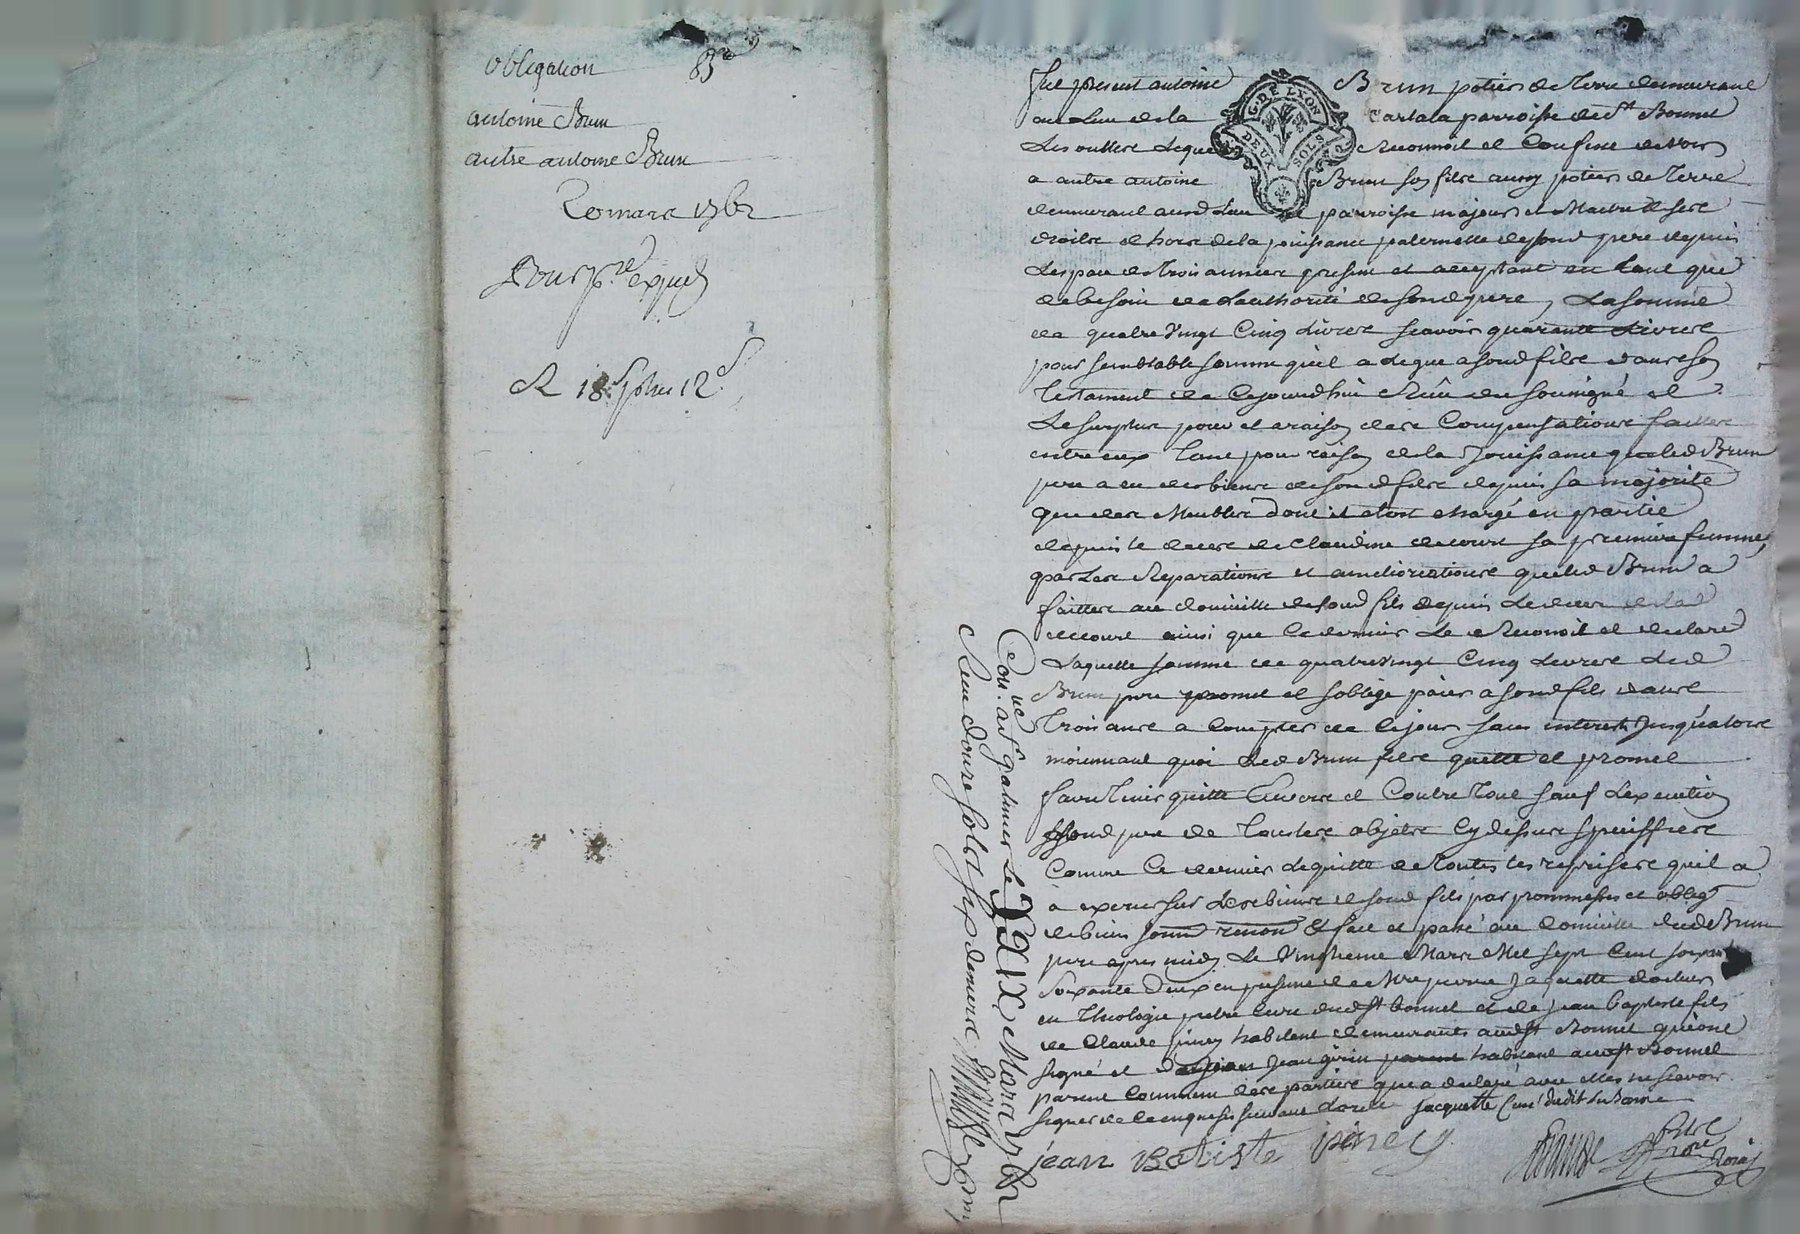 obligation 85ᵗᵗ
antoine Brun
autre antoine Brun
20 mars 1762
Pour pʳᵉ expedᵒⁿ
R 18 s pbre 12 d
G. DE LYON
DEUX SOLS
Fut present antoine Brun potier de Terre demeurant
au Lieu de la Cartala parroisse de Sᵗ Bonnet
Les oulles Lequel Reconnoit et Confesse devoir
a autre antoine Brun son fils aussy potier de Terre
demeurant aud Lieu et parroisse majeur et Maitre de ses
droits et hors de la puissance paternelle desond pere depuis
Lespace de trois annees present et acceptant en tant que
de besoin de Lauthorité desond pere, La somme
de quatre vingt Cinq Livres scavoir quarante Livres
pour semblable somme quil a Legué a sond fils dans son
Testament de Cejourdhui Reçu du soussigné et
Le surplus pour et a raison des Compensations faittes
entre eux tant pour raison de la Jouissance que led Brun
pere a eu des biens de sond fils depuis sa majorité
que des Meubles dont il etoit chargé en partie
depuis le deces de Claudine decours sa premiere femme
que Les Reparations et ameliorations que led Brun a
faittes au domicille de sond fils depuis Le deces de lad
decours ainsi que Ce dernier Le Reconoit et declare
Laquelle somme de quatre vingt Cinq Livres Led
Brun pere promet et soblige païer a sond fils dans
Trois ans a Compter de Ce jour sans interest Jusqu'alors
moiennant quoi Led Brun fils quitte et promet
faire tenir quitte Envers et Contre Tout sauf Lexecution
sond pere de Tous les objets Cy dessus speciffies
Comme Ce dernier Le quitte de Toutes les reprises quil a
a exercer sur Les biens de sond fils par prommesses et oblig
de biens soum renon &. fait et passé au domicille dud Brun
pere apres midy Le Vingtieme Mars Mil sept Cent
soixante deux en presence de Mre pierre Jaquette docteur
en Theologie pretre Curé dud St bonnet et de jean baptiste fils
de Claude piney habitant demeurants aud St Bonnet qui ont
signé et de Jean girin habitant aud St Bonnet
parent Commun des parties qui a declaré avec elles ne scavoir
signer de Ce enquis suivant Lord
Jacquette Curé dudit St Bonnet
jean Batiste piney
noʳᵉ Roial
Conᵘᵉ a Sᵗ galmier Le XXIX Mars 1762
Reçu douze sols six deniers